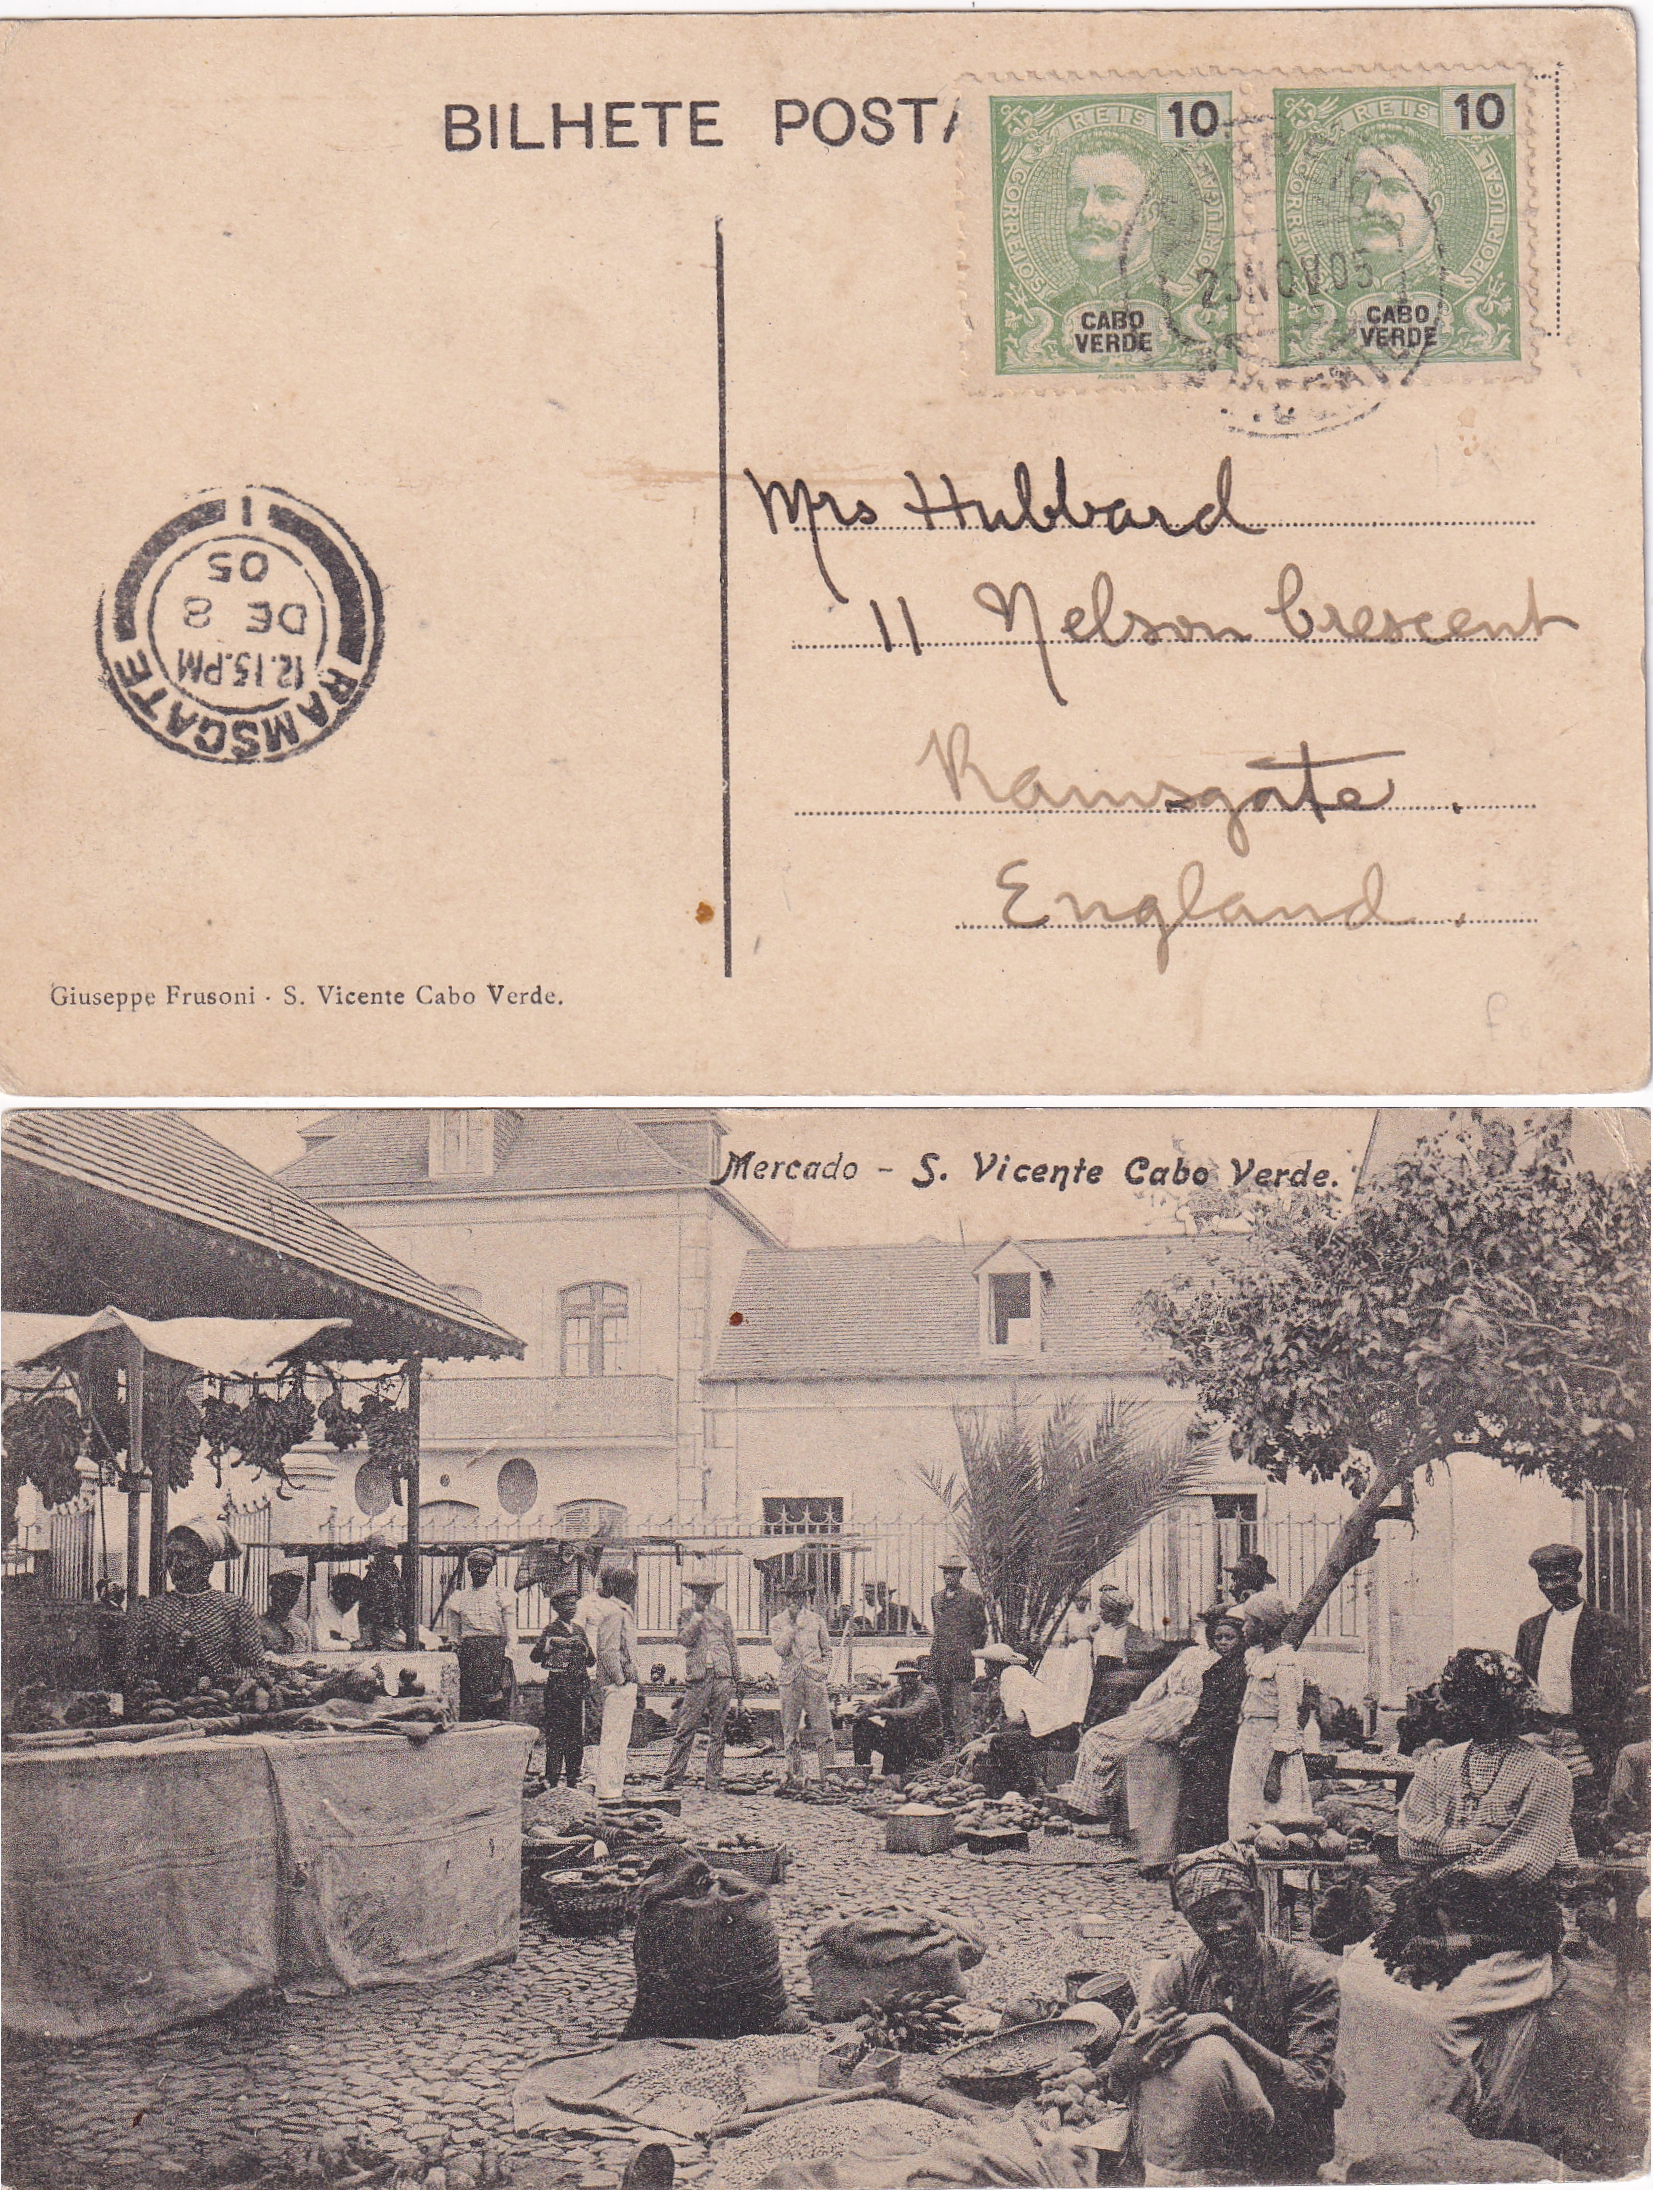 BILHETE POSTA
REIS 10
CORREIOS PORTUGAL
CABO
VERDE
REIS 10
CORREIOS PORTUGAL
CABO
VERDE
NOV 05
Mrs Hubbard
11 Nelson Crescent
Ramsgate.
England.
RAMSGATE
12.15.PM
DE 8
05
1
Giuseppe Frusoni · S. Vicente Cabo Verde.
Mercado - S. Vicente Cabo Verde.